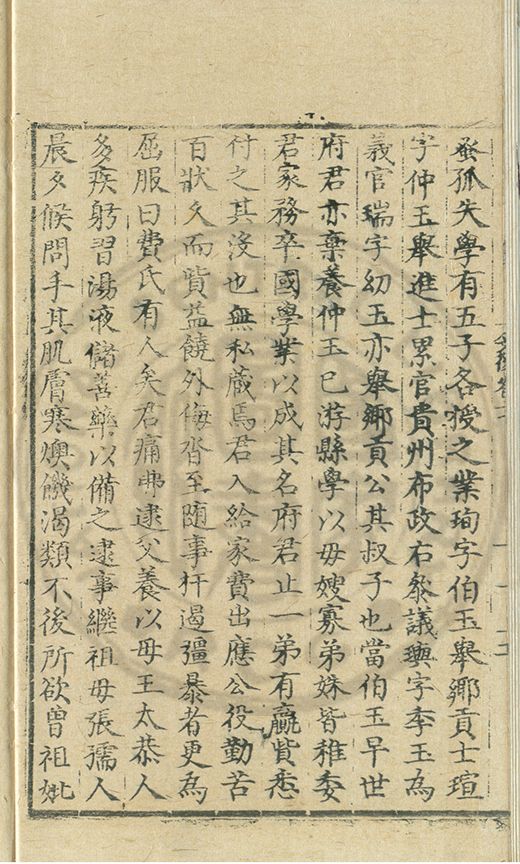 蚤孤失學有五子各授之業珣字伯玉舉鄉貢士瑄
字仲玉舉進士累官貴州布政右叅議璵字季玉為
義官瑞字幼玉亦舉鄉貢公其叔子也當伯玉早世
府君亦棄養仲玉已游縣學以毋嫂寡弟妹皆稚委
君家務卒國學業以成其名府君止一弟有贏貲悉
付之其沒也無私蔵焉君入給家費出應公役勤苦
百狀久而貲益饒外侮沓至随事扞遏彊暴者更為
屈服曰費氏有人矣君痛弗逮父養以母王太恭人
多疾躬習湯液儲善藥以備之逮事繼祖母張孺人
晨夕候問手其肌膚寒燠饑渴類不後所欲曾祖妣